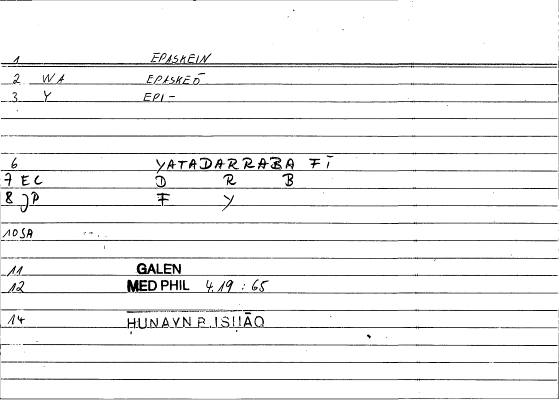 1 EPASKEIN
2 WA EPASKEŌ
3 Y EPI-
6 YATADARRABA FĪ
7 EC D R B
8 JP F Y
10 SA
11 GALEN
12 MED PHIL 4.19 : 65
14 HUNAYN B. ISḤĀQ